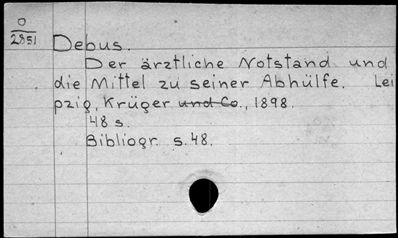 O
2851
Debus.
Der ärztliche Notstand und
die Mittel zu seiner Abhülfe. Lei
pzig, Krüger und Co., 1898.
48 s.
Bibliogr. s. 48.